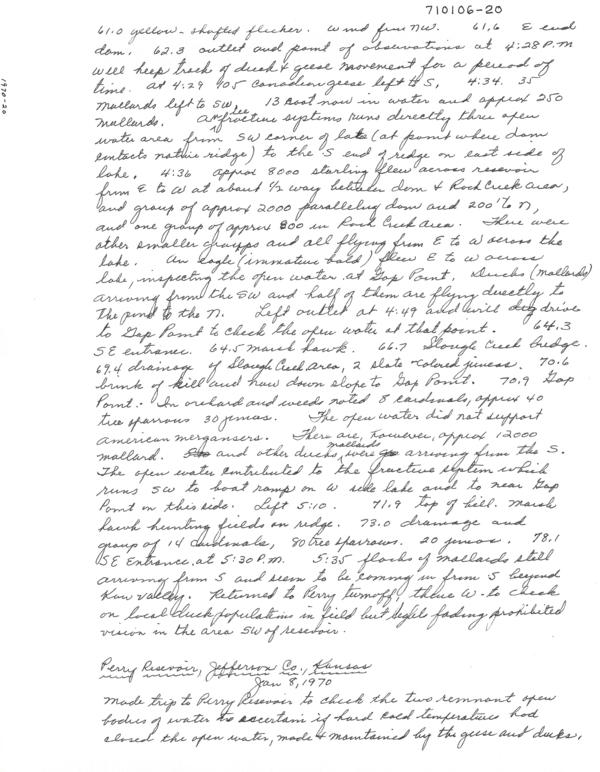 710106-20
1970-20
61.0 yellow-shafted flicker. Wind from NW. 61.6 E end
dam. 62.3 outlet and point of observations at 4:28 P.M
will keep track of duck & geese movement for a period of
time. At 4:29 905 Canadian geese left to S, 4:34. 35
mallards left to SW, 13 Coot now in water and approx 250
mallards. An ice fracture systems runs directly thru open
water area from SW corner of lake (at point where dam
contacts native ridge) to the S end of ridge on east side of
lake. 4:36 approx 8000 starling flew across resevoir
from E to W at about 1/2 way between dam & Rock Creek area,
and group of approx 2000 paralleling dam and 200' to N,
and one group of approx 800 in Rock Creek area. There were
other smaller groups and all flying from E to W across the
lake. An Eagle (immature bald) flew E to W across
lake, inspecting the open water at Gap Point. Ducks (mallards)
arriving from the SW and half of them are flying directly to
the pond to the N. Left outlet at 4:49 and will drive
to Gap Point to check the open water at that point. 64.3
SE entrance. 64.5 marsh hawk. 66.7 Slough Creek bridge.
69.4 drainage of Slough Creek area, 2 slate-colored juncos. 70.6
brink of hill and now down slope to Gap Point. 70.9 Gap
Point.- In orchard and weeds noted 8 cardinals, approx 40
tree sparrows 30 juncos. The open water did not support
american mergansers. There are, however, approx 12000
mallard. and other ducks, mallards were arriving from the S.
The open water contributed to the fractive system which
runs SW to boat ramp on W side lake and to near Gap
Point on this side. Left 5:10. 71.9 top of hill. Marsh
hawk hunting fields on ridge. 73.0 drainage and
group of 14 Cardinals, 80 tree sparrows. 20 juncos. 78.1
SE Entrance, at 5:30 P.M. 5:35 flocks of mallards still
arriving from S and seem to be coming in from S beyond
Kaw Valley. Returned to Perry turnoff, thence W. to check
on local duck populations in field but light fading prohibited
vision in the area SW of resevoir.
Perry Resevoir, Jefferson Co., Kansas
Jan 8, 1970
Made trip to Perry Resevoir to check the two remnant open
bodies of water to ascertain if hard cold temperatures had
closed the open water, made & maintained by the geese and ducks.